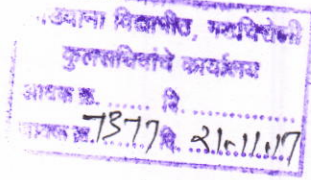 गोंडवाना विद्यापीठ, गडचिरोली
कुलसचिवांचे कार्यालय
आवक क्र. ........ दि. ............
जावक क्र. 7377 दि. 21.11.17